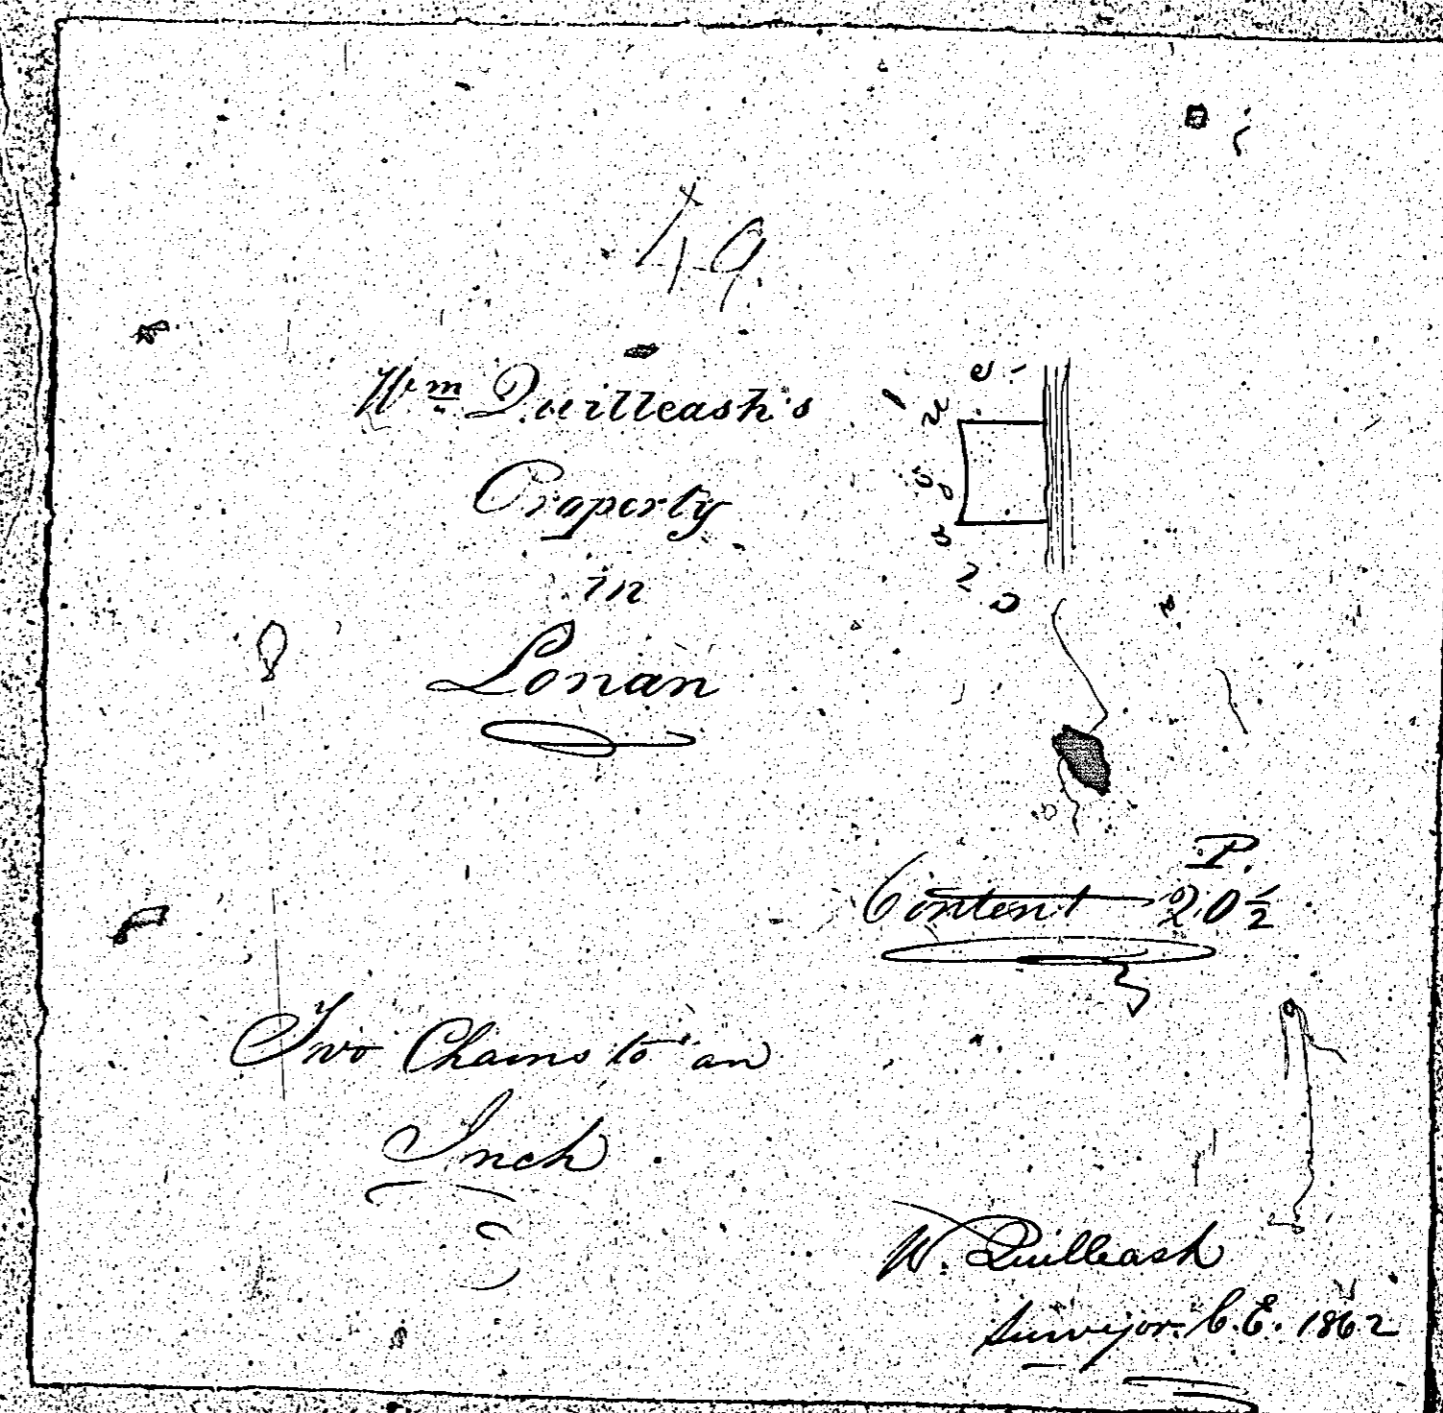 49
Wm Quilleash's
Property
in
Lonan
P.
Content 20½
Two Chains to an
Inch
W. Quilleash
Surveyor. C.E. 1862